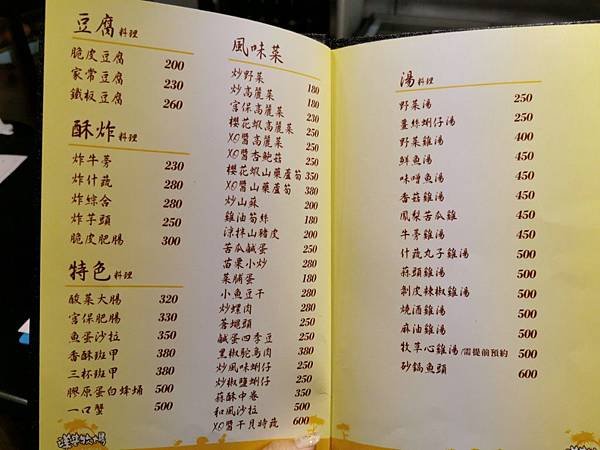 豆腐料理
脆皮豆腐 200
家常豆腐 230
鐵板豆腐 260
酥炸料理
炸牛蒡 230
炸什蔬 280
炸綜合 280
炸芋頭 250
脆皮肥腸 300
特色料理
酸菜大腸 320
宮保肥腸 330
魚蛋沙拉 350
香酥斑甲 380
三杯斑甲 380
膠原蛋白蜂蛹 500
一口蟹 500
風味菜
炒野菜 180
炒高麗菜 180
宮保高麗菜 230
櫻花蝦高麗菜 250
XO醬高麗菜 250
XO醬杏鮑菇 250
櫻花蝦山藥蘆筍 350
XO醬山藥蘆筍 380
炒山蘇 200
雞油筍絲 180
涼拌山豬皮 200
苦瓜鹹蛋 250
苗栗小炒 280
菜脯蛋 180
小魚豆干 280
炒螺肉 280
蒼蠅頭 250
鹹蛋四季豆 250
黑椒鴕鳥肉 380
炒風味蜊仔 250
炒椒鹽蜊仔 250
蒜酥中卷 350
和風沙拉 350
XO醬干貝時蔬 600
湯料理
野菜湯 250
薑絲蜊仔湯 250
野菜雞湯 400
鮮魚湯 450
味噌魚湯 450
香菇雞湯 450
鳳梨苦瓜雞 450
牛蒡雞湯 450
什蔬丸子雞湯 500
蒜頭雞湯 500
剝皮辣椒雞湯 500
燒酒雞湯 500
麻油雞湯 500
牧草心雞湯/需提前預約 500
砂鍋魚頭 600